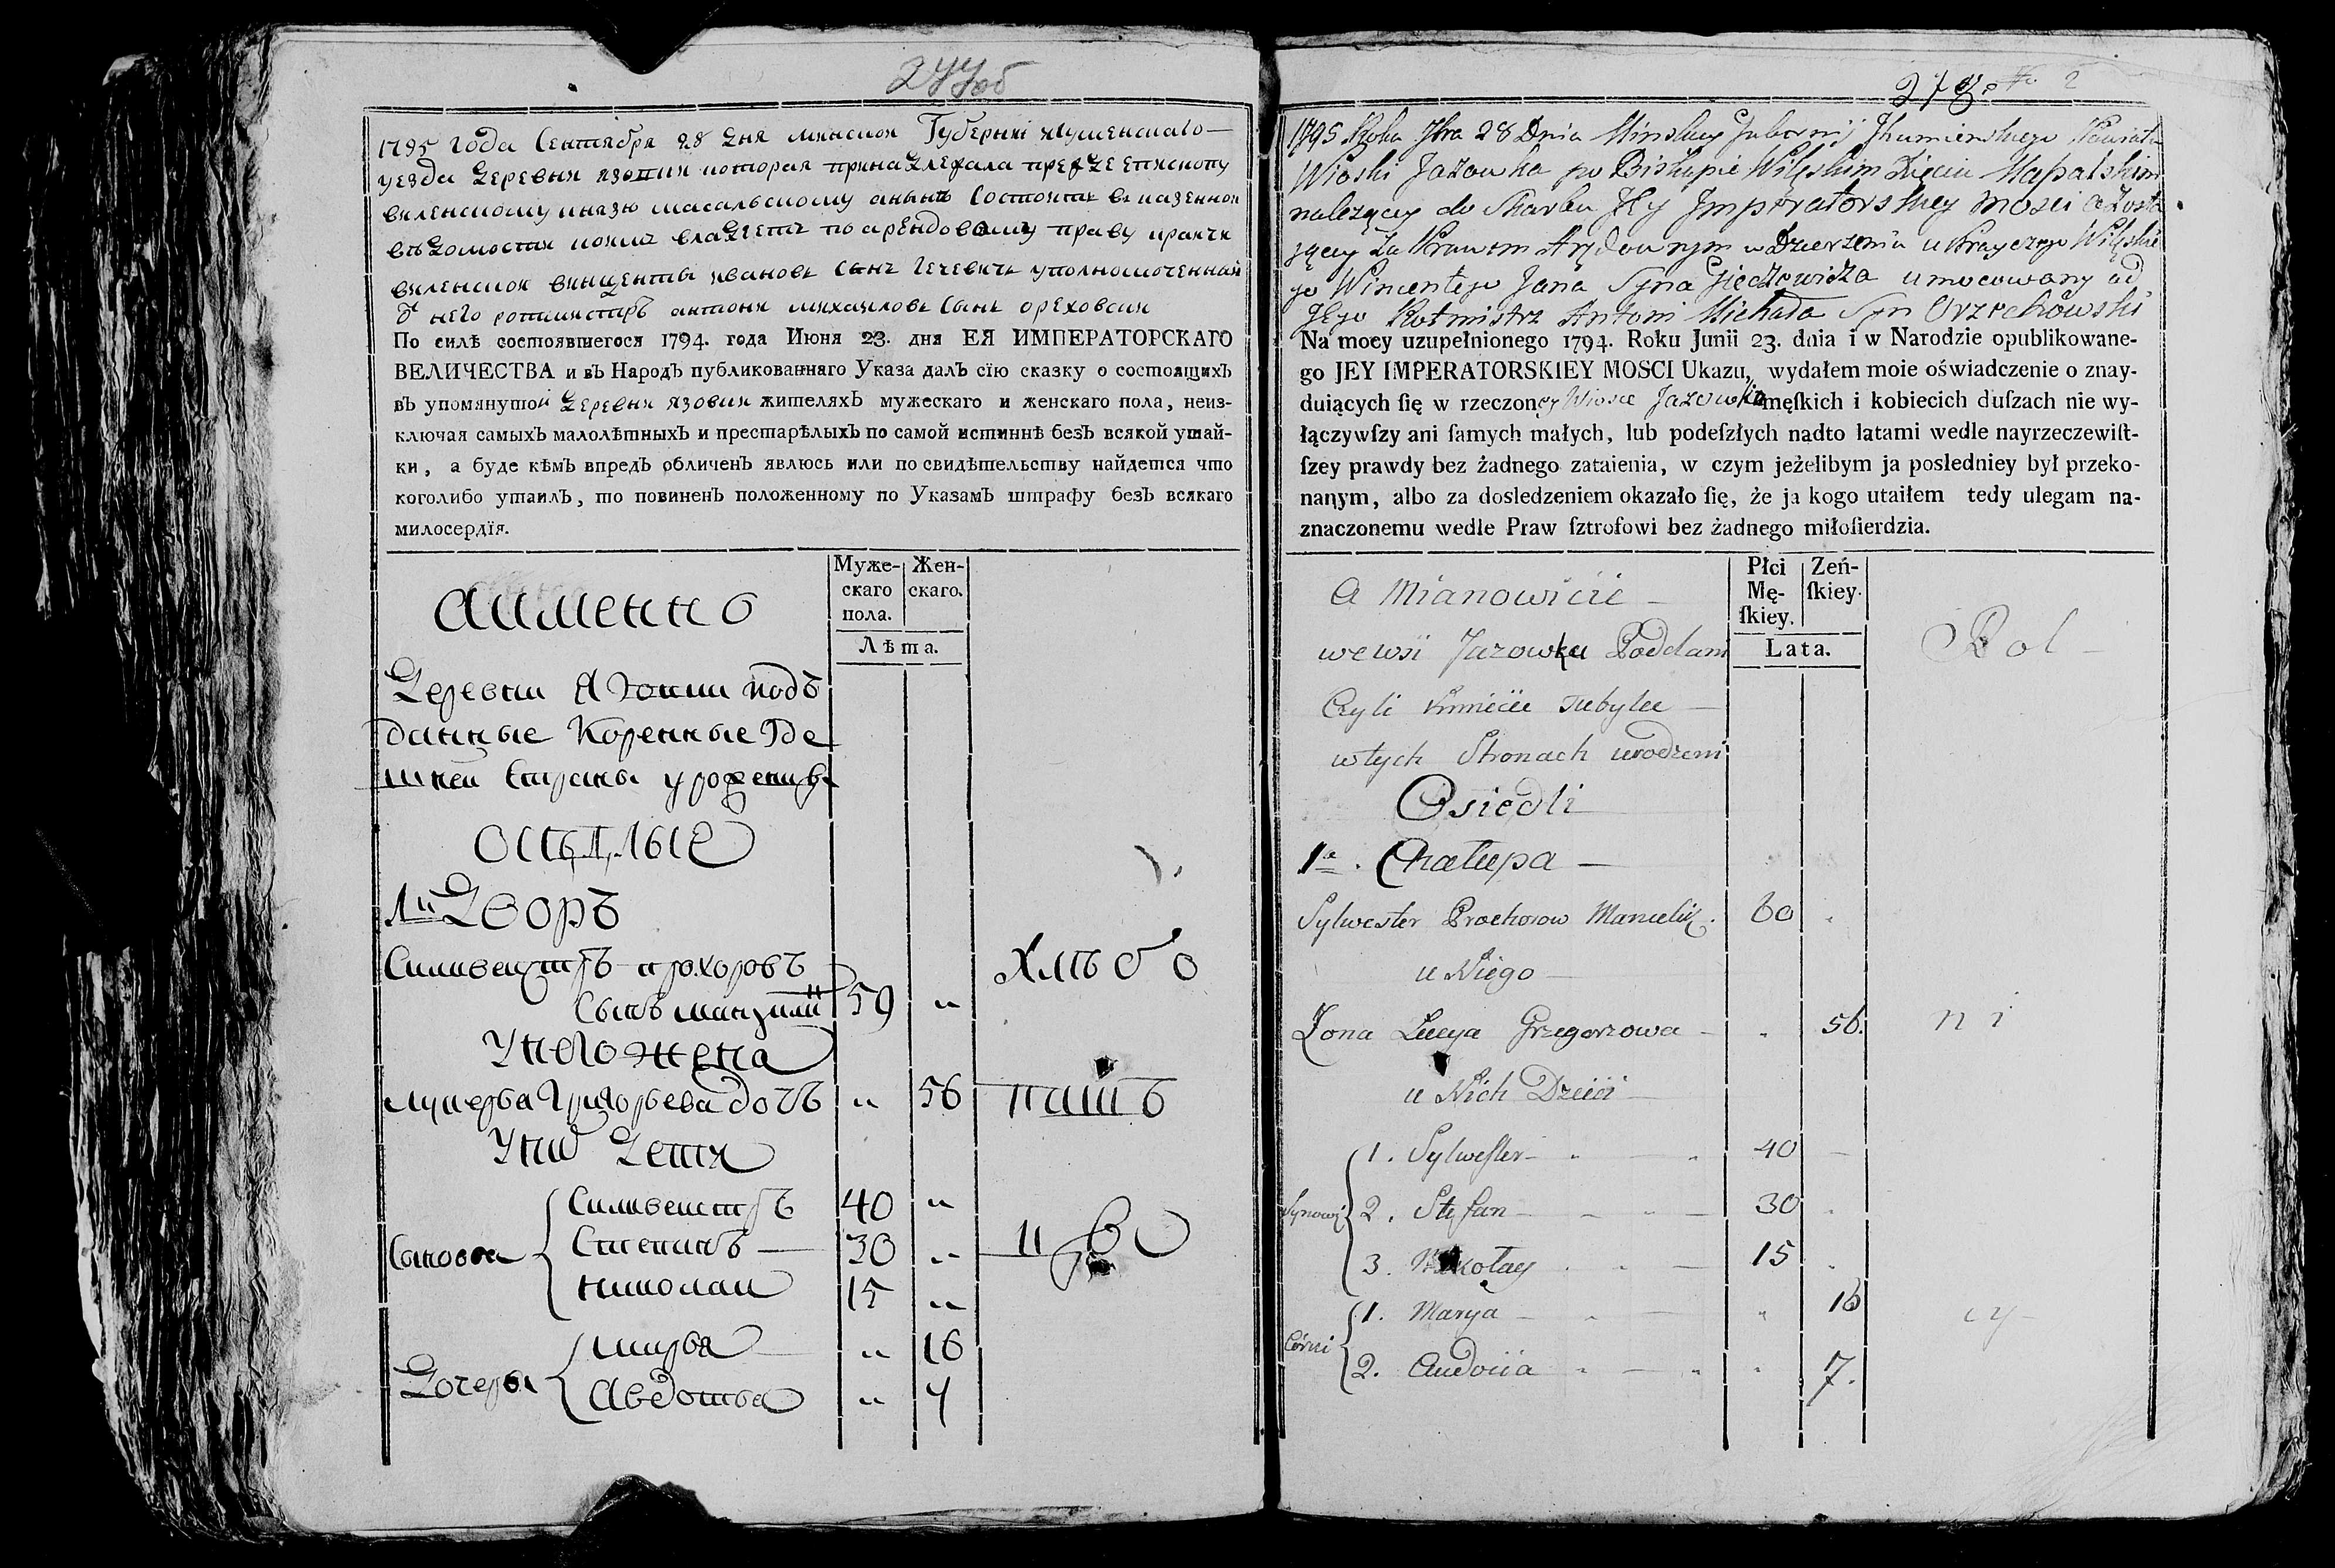 277об
1795 года Сентября 28 дня минской Губерніи игуменскаго
уезда деревни язовки которая принадлежала прежде епископу
виленскому князю масальскому анынѣ Состоитъ въ казенном
вѣдомостки коимъ владѣетъ по арендовному праву
виленской винценты ивановъ Сынъ Гечевичъ уполномоченный
от него ротмистръ антони михаиловъ Сынъ ореховски
По силѣ состоявшегося 1794. года Июня 23. дня ЕЯ ИМПЕРАТОРСКАГО
ВЕЛИЧЕСТВА и въ Народъ публикованнаго Указа далъ сїю сказку о состоящихъ
въ упомянутой деревни язовки жителяхъ мужескаго и женскаго пола, неиз-
ключая самыхъ малолѣтныхъ и престарѣлыхъ по самой истиннѣ безъ всякой утай-
ки, а буде кѣмъ впредъ обличенъ явлюсь или по свидѣтельству найдется что
коголибо утаилъ, то повиненъ положенному по Указамъ штрафу безъ всякаго
милосердїя.
Муже-
скаго
пола.
Жен-
скаго.
Лѣта.
аименно
Деревни Язовки подъ
данные Коренные Зде
шней Стороны уроженцы
Оседлые
1й Дворъ
Силивестръ прохоровъ
Сынъ манцулий 59 "
Унего жена
лукерья Григорьева дочь " 56
Уних Дети
Сыновья
Силивестръ 40 "
Степанъ 30 "
николаи 15 "
Дочери
марья " 16
Авдотья " 7
Хлѣбо
пашъ
цово
278.
1795 Roku 7bra 28 Dnia Minskiey Gubernij Ihumienskiego Powiatu
Wioski Jazowka po Biskupie Wileskim Xięciu Massalskim
należący do Skarbu JEy Jmperatorskiey Mosci a Zosta
jący Za Prawem Arędownym w Dzierzeniu u Krayczego Wileskie
go Wincentego Jana Syna Gieczewicza umocowany od
JEgo Rotmistrz Antoni Michała Syn Orzechowski
Na moey uzupełnionego 1794. Roku Junii 23. dnia i w Narodzie opublikowane-
go JEY IMPERATORSKIEY MOSCI Ukazu, wydałem moie oświadczenie o znay-
duiących ſię w rzeczoney Wiosce Jazowka męſkich i kobiecich duſzach nie wy-
łączywſzy ani ſamych małych, lub podeſzłych nadto latami wedle nayrzeczewiſt-
ſzey prawdy bez żadnego zataienia, w czym jeżelibym ja posledniey był przeko-
nanym, albo za dosledzeniem okazało ſię, że ja kogo utaiłem tedy ulegam na-
znaczonemu wedle Praw ſztrofowi bez żadnego miłoſierdzia.
Płci
Mę-
ſkiey.
Zeń-
ſkiey.
Lata.
A Mianowicie
we wsi Jazowku Poddani
Czyli Kmiecie Tubylce
w tych Stronach urodzeni
Osiedli
1a. Chałupa
Sylwester Prochorow Manculiz. 60
u Niego
Zona Lucya Grzegorzowa 56.
u Nich Dzieci
Synowie
1. Sylweſter 40
2. Stefan 30
3. Mikołay 15
Córki
1. Marya 16
2. Audocia 7.
Rol
ni
cy